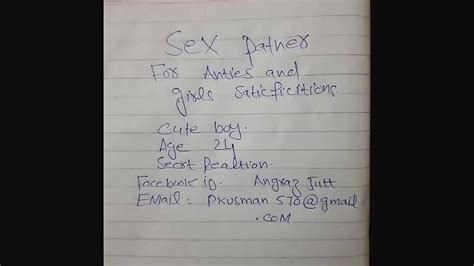 Sex Patner
For Anties and
girls Saticficitions
Cute boy.
Age 24
Secrt Realtion.
Facebook iD. Angraz Jutt
EMail : Pkusman 570@gmail
.COM